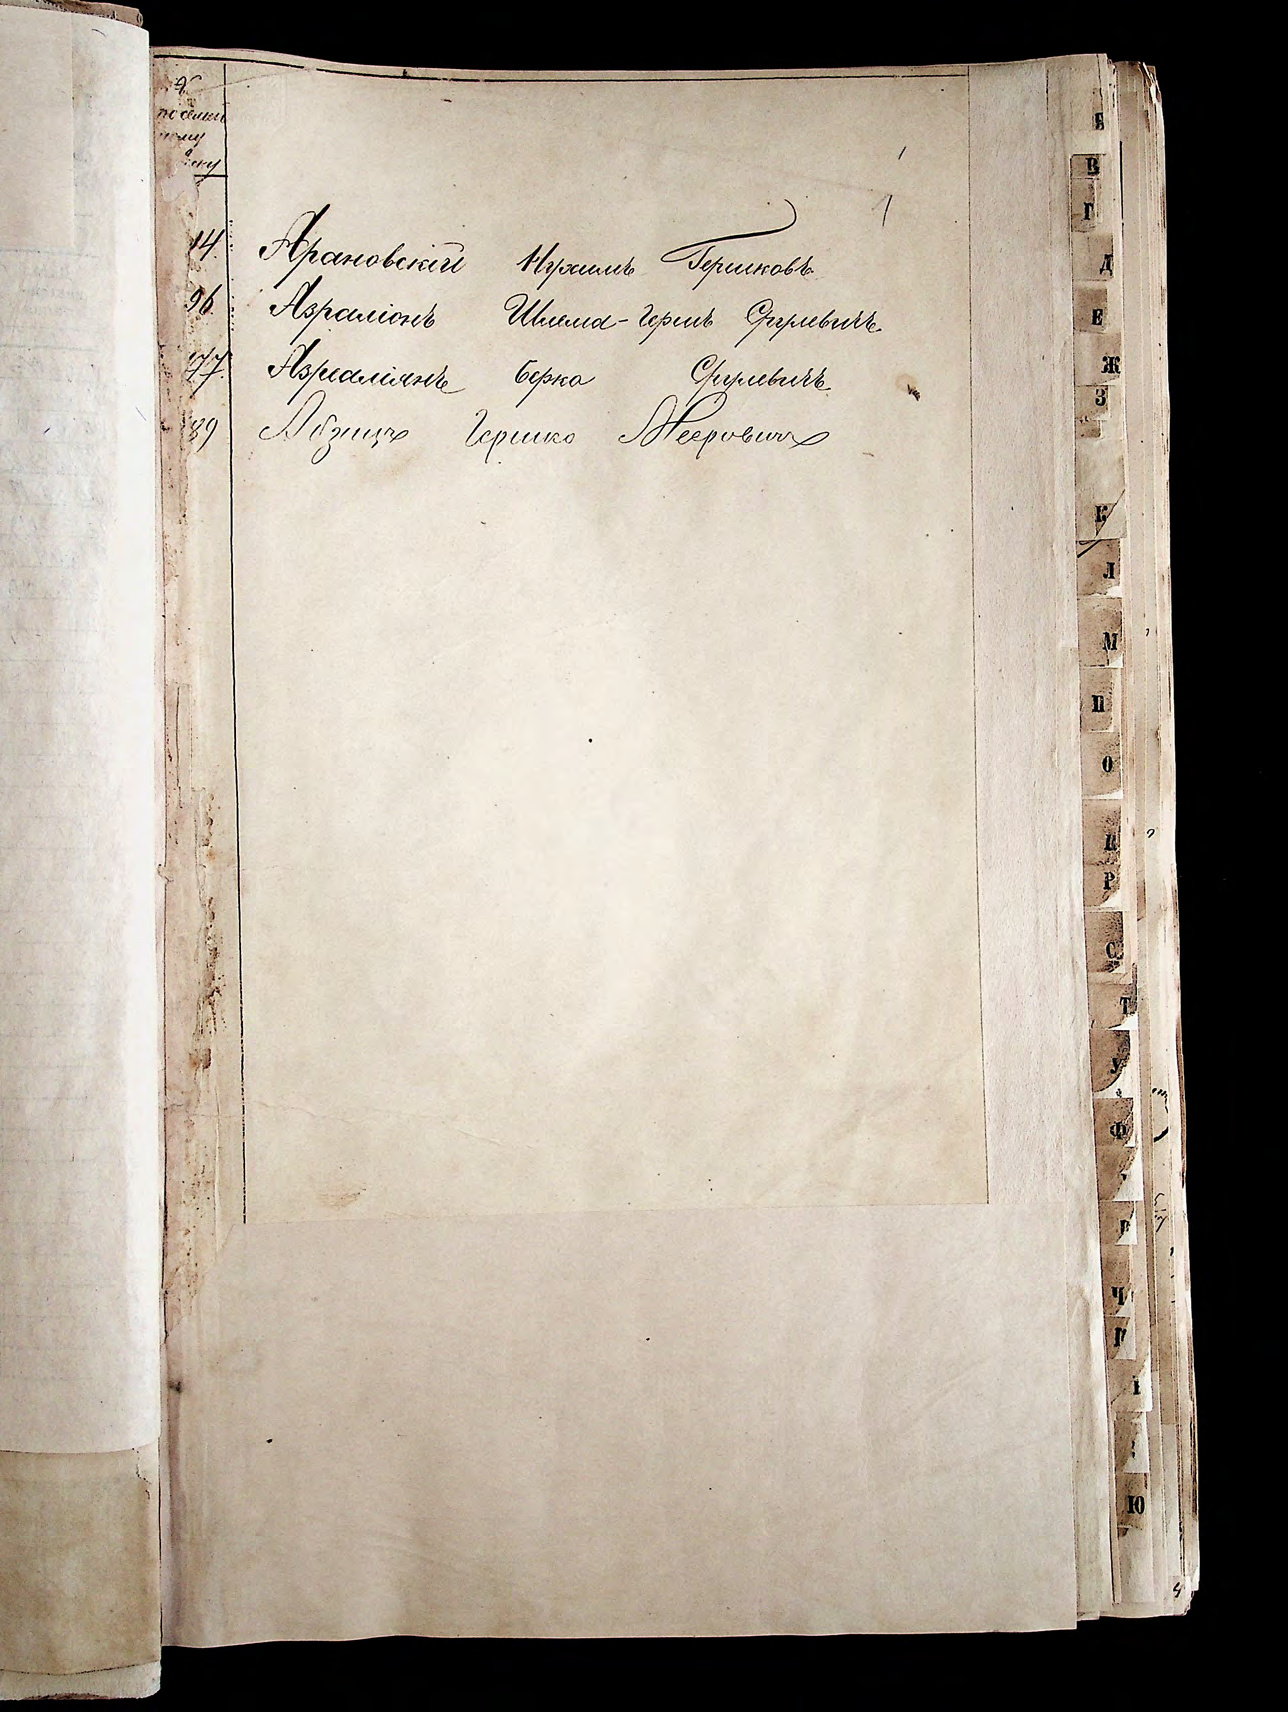 №
по семей
ному
списку
1
14. Арановскій Нухимъ Гершковъ
96. Азраліонъ Шлема-Гершъ Срулевичъ
77. Азраліянъ Берко Срулевичъ
89 Абзицъ Гершко Мееровичъ
В
Г
Д
Е
Ж
З
К
Л
М
П
О
Р
С
Т
У
Ф
Ч
Ю